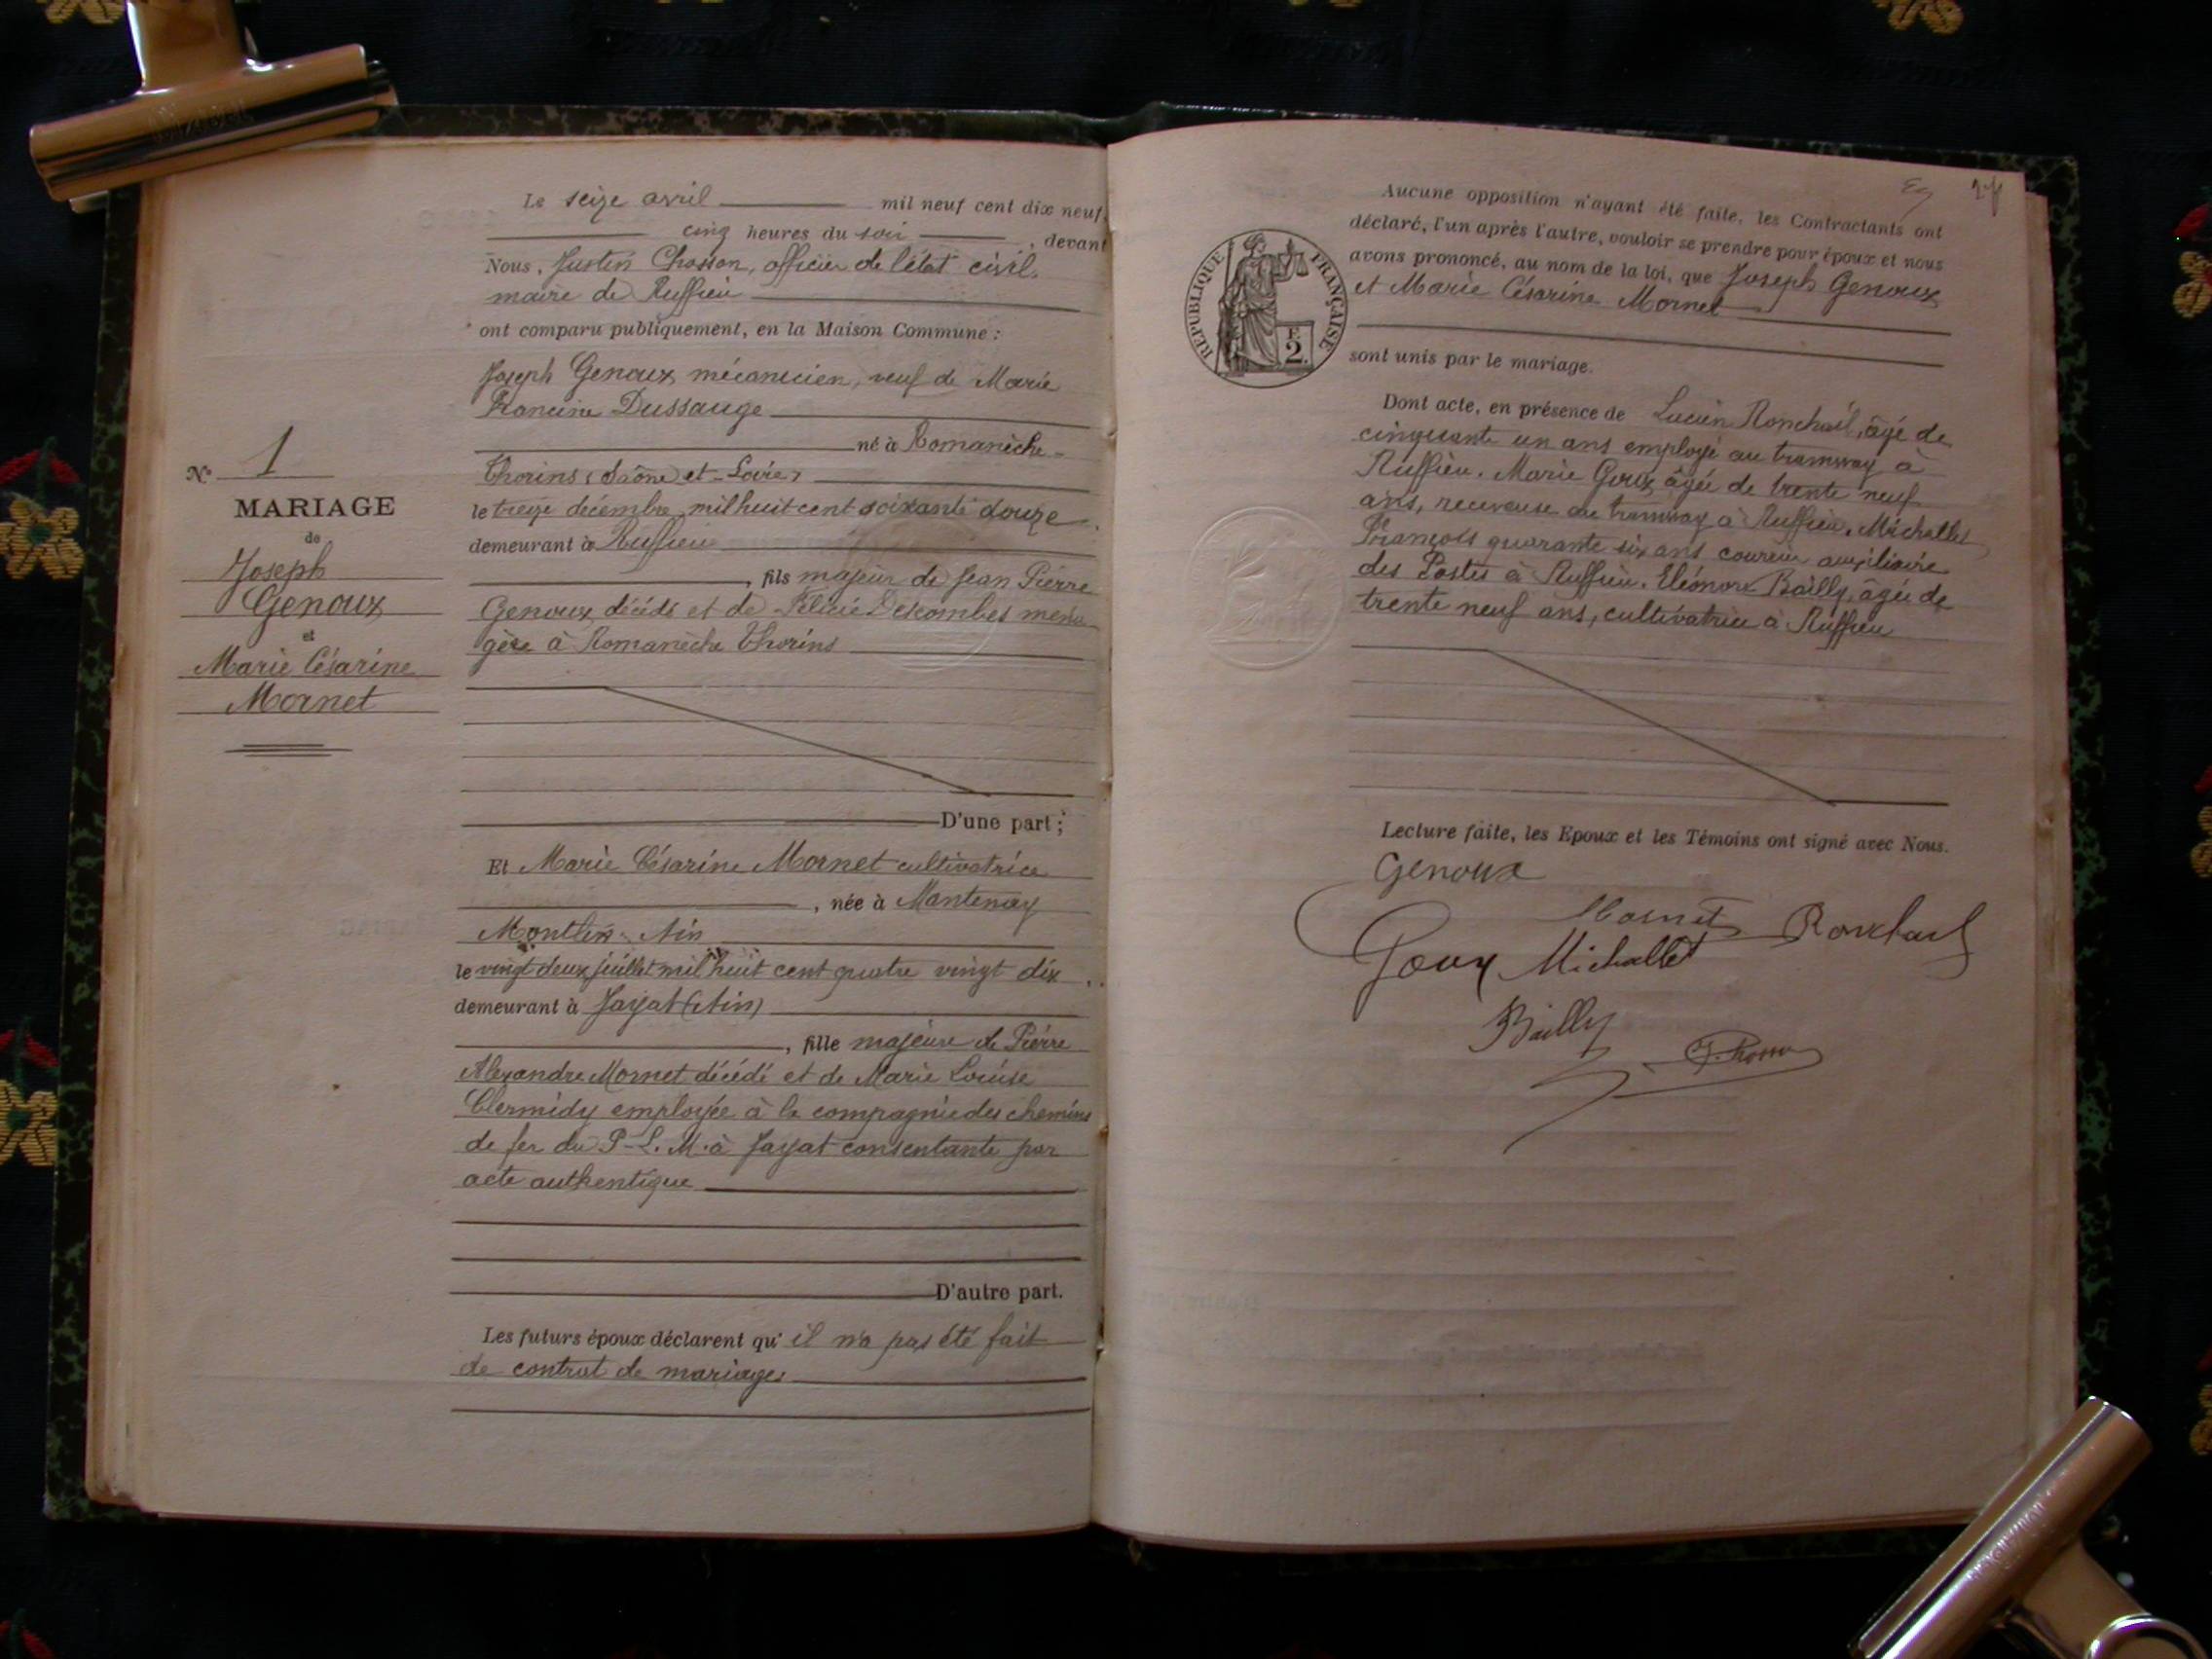 Le seize avril mil neuf cent dix neuf,
cinq heures du soir, devant
Nous, Justin Chosson, officier de l'état civil,
maire de Ruffieu
ont comparu publiquement, en la Maison Commune :
Joseph Genoux mécanicien, veuf de Marie
Francine Dussauge
né à Romanèche-
Thorins (Saône-et-Loire)
le treize décembre mil huit cent soixante douze
demeurant à Ruffieu
, fils majeur de Jean Pierre
Genoux décédé et de Félicie Descombes ména
gère à Romanèche Thorins
N° 1
MARIAGE
de
Joseph
Genoux
et
Marie Césarine
Mornet
D'une part ;
Et Marie Césarine Mornet cultivatrice
, née à Mantenay
Montlin Ain
le vingt deux juillet mil huit cent quatre vingt dix
demeurant à Jayat (Ain)
, fille majeure de Pierre
Alexandre Mornet décédé et de Marie Louise
Clermidy employée à la compagnie des chemins
de fer du P-L.M. à Jayat consentante par
acte authentique
D'autre part.
Les futurs époux déclarent qu'il n'a pas été fait
de contrat de mariage
27
Aucune opposition n'ayant été faite, les Contractants ont
déclaré, l'un après l'autre, vouloir se prendre pour époux et nous
avons prononcé, au nom de la loi, que Joseph Genoux
et Marie Césarine Mornet
sont unis par le mariage.
RÉPUBLIQUE FRANÇAISE
E
2.
Dont acte, en présence de Lucien Ronchail, âgé de
cinquante un ans employé au tramway à
Ruffieu. Marie Goux âgée de trente neuf
ans, receveuse au tramway à Ruffieu. Michallet
François quarante six ans coureur auxiliaire
des Postes à Ruffieu. Eléonore Bailly, âgée de
trente neuf ans, cultivatrice à Ruffieu
Lecture faite, les Epoux et les Témoins ont signé avec Nous.
Genoux
Mornet Ronchail
Goux Michallet
Bailly
J. Chosson